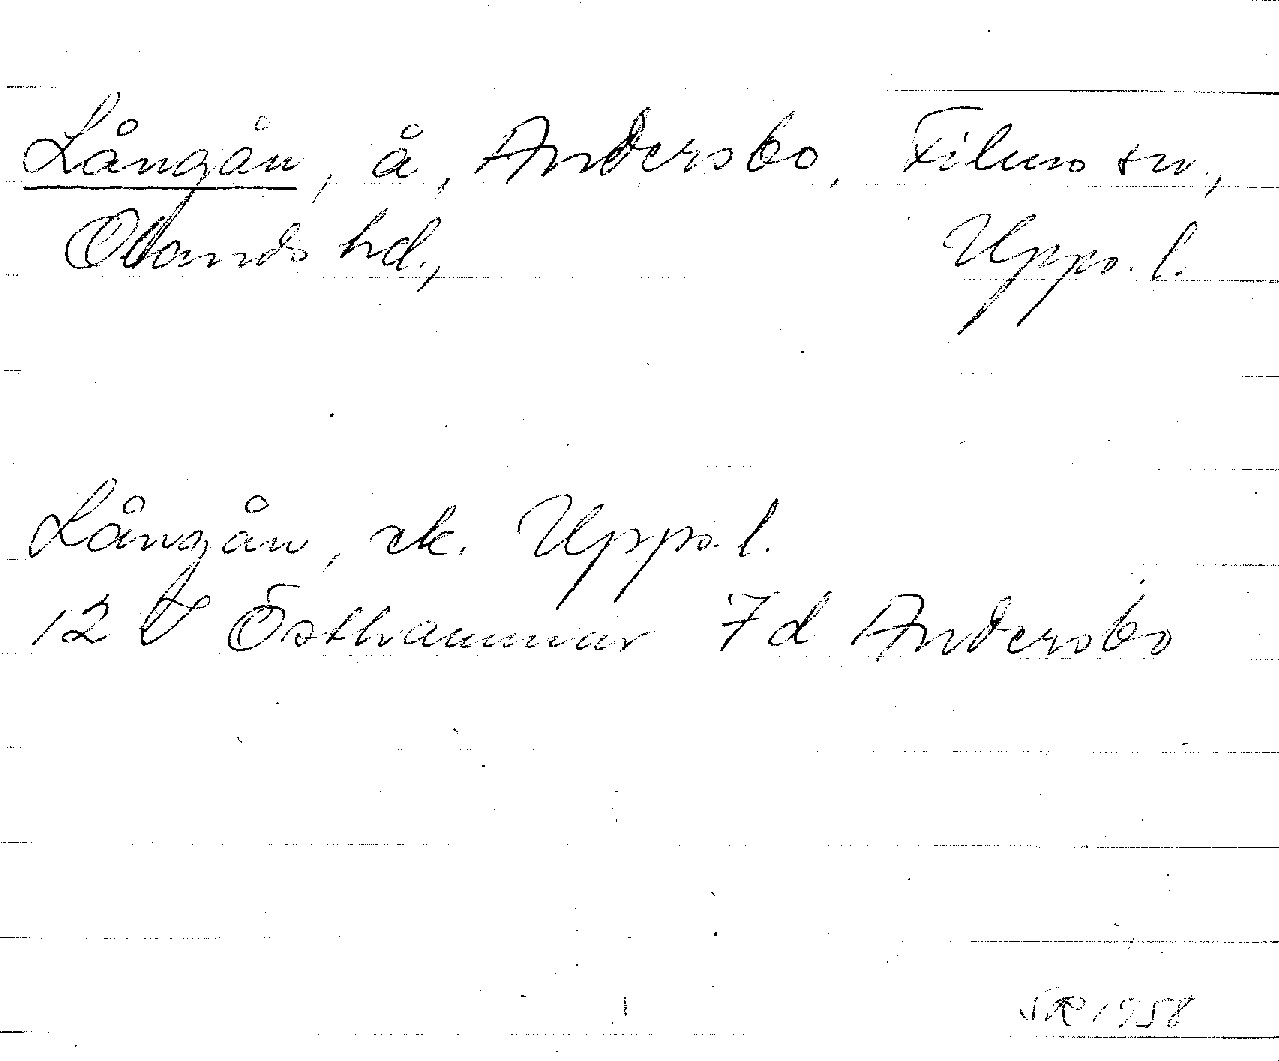 Långån, å, Andersbo, Films sn,
Olands hd., Upps. l.
Långån, ek. Upps. l.
12 V Östhammar 7d Andersbo
1958